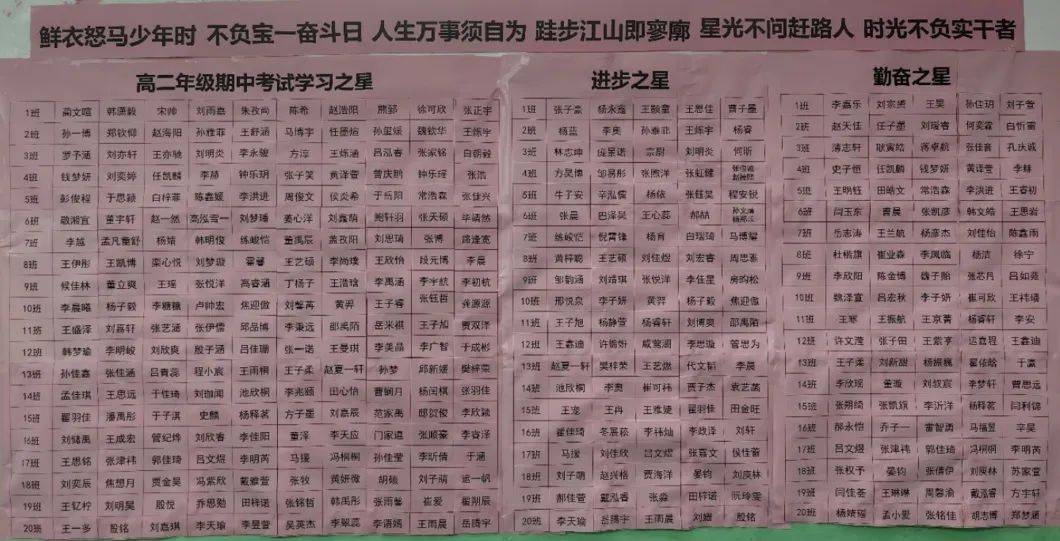 鲜衣怒马少年时 不负宝一奋斗日 人生万事须自为 跬步江山即寥廓 星光不问赶路人 时光不负实干者
高二年级期中考试学习之星
1班 蔺文暄 韩潇毅 宋帅 刘雨嘉 朱孜尚 陈希 赵浩阳 熊郅 徐可欣 张正宇
2班 孙一博 郑钦仰 赵海阳 孙雅菲 王舒涵 马博宇 任墨焓 孙玺媛 魏钦华 王烁宇
3班 罗予涵 刘亦轩 王亦驰 刘明炎 李永骏 方淳 王烁涵 吕泓睿 张家铭 白朝毅
4班 钱梦妍 刘奕婷 任凯麟 李赫 钟乐玥 张子笑 黄译萱 曾庆鹏 钟乐瑶 张浩
5班 彭俊程 于思颖 白梓菲 陈鑫媛 李洪进 周俊文 侯炎希 于岳阳 常浩森 张佳兴
6班 敬湘宜 董宇轩 赵一然 高泓雪一 刘梦璠 姜心洋 刘鑫萌 鲍轩羽 张天硕 毕靖然
7班 李越 孟凡童舒 杨婧 韩明俊 练峻恺 董禹辰 盖孜阳 刘思琦 张博 路逢宽
8班 王伊彤 王凯博 栾心悦 刘梦璇 霍睿 王艺硕 李尚璞 王欣怡 段元博 李晨
9班 候佳林 董立爽 王瑶 张悦洋 高睿涵 丁杨子 王浩晗 李禹涵 李宇航 李初杭
10班 李晨曦 杨子毅 李穗穗 卢帅宏 焦迎傲 刘馨苒 黄羿 王子睿 张钰哲 龚源源
11班 王盛泽 刘嘉轩 张艺涵 张伊儒 邱岳博 李秉远 邵禹陌 岳米祺 王子旭 贾双泽
12班 韩梦瑜 李明峻 刘欣爽 殷子涵 吕佳珊 张一诺 王曼琪 李美晶 李广智 于成彬
13班 孙佳鑫 张佳涵 吕青蕊 程小宸 王雨桐 王子柔 赵夏一轩 孙梦 邱新媛 樊梓荣
14班 孟佳琪 王思远 于佳琦 刘珈闻 池欣航 李兆颐 田心怡 曹钶月 杨闰棋 张羽佳
15班 翟羽佳 潘禹彤 于子淇 史麟 杨释茗 方子墨 刘嘉辰 范家禹 邸贺俊 李欣颖
16班 刘储禹 王成宏 管纪烨 刘欣睿 李佳阳 董泽 李天应 门家道 张顺豪 李睿泽
17班 王思铭 张津祎 郭佳琦 吕文煜 李明芮 马瑗 冯桐桐 孙佳莹 李昕倩 于涵
18班 刘奕辰 焦想月 贾金昊 冯紫欣 戴雅萱 张牧 黄妍微 胡硪 刘子萌 追一帆
19班 王钇柠 刘明昊 殷悦 乔思勤 田梓诺 张锦哲 韩禹彤 张雨馨 崔爱 翟朔辰
20班 王一多 殷铭 刘嘉琪 李天瑜 李昱萱 吴英杰 李翠蕊 李语嫣 王雨晨 岳腾宇
进步之星
1班 张子豪 杨永鑫 王颢童 王思佳 曹子墨
2班 杨蓝 李奥 孙泰菲 王烁宇 杨睿
3班 林志坤 庞景诺 宗尉 刘明炎 何昕
4班 方昊博 邹易彤 张煦洋 张虹髓
5班 牛子安 辛泓儒 杨依 张钰昊 程安锐
6班 张晨 巴泽昊 王心蕊 郝喆
7班 练峻恺 倪霄锋 杨育 白瑞琦 马博玺
8班 黄梓聪 王艺硕 刘佳煜 刘宏睿 周思憙
9班 邹韵涵 刘靖琪 张悦洋 李佳星 房昀松
10班 邢悦泉 李子妍 黄羿 杨子毅 焦迎傲
11班 王子旭 杨静萱 杨睿轩 刘博奥 邵禹陌
12班 王鑫迪 许锴妢 咸莺涵 李思璇 管思为
13班 赵夏一轩 樊梓荣 王艺燃 代文韬 李晨
14班 池欣航 李奥 崔可祎 贾子杰 袁艺菡
15班 王宠 王冉 王雅婕 翟羽佳 田金旺
16班 翟佳琦 冬展菘 李祎灿 李政泽 刘轩
17班 马瑗 刘佳欣 吕文煜 张嘉文 侯佳蕾
18班 刘子萌 赵兴格 贾海洋 晏钧 刘庚林
19班 郝佳萱 戴泓睿 张淼 田梓诺 阮玲雯
20班 李天瑜 岳腾宇 王雨晨 刘姗 殷铭
勤奋之星
1班 李嘉乐 刘宗赟 王昊 孙佳玥 刘子萱
2班 赵天佳 任子墨 刘瑷睿 何奕霏 白忻雷
3班 薄志轩 耿寅皓 蒋卓航 张佳音 孔庆诚
4班 史子恒 任凯麟 钱梦妍 黄译萱 李赫
5班 王明钰 田皓文 常浩森 李洪进 王睿初
6班 闫玉东 曹晨 张凯彦 韩文皓 王思岩
7班 岳志涛 王兰航 杨彦杰 刘佳怡 陈鑫雨
8班 杜楷旗 崔业森 李凤临 杨洁 徐宁
9班 李欣阳 陈金博 魏子贻 张芯月 吕如菀
10班 魏泽宣 吕宏秋 李子妍 崔可欣 王祎璠
11班 王寒 王振航 王京菁 杨睿轩 李安
12班 许文滢 张子田 王紫亭 迟嘉程 王鑫迪
13班 王子柔 刘新甜 杨振巍 翟依晗 于赢
14班 李欣瑶 董璇 刘叔宸 李梦轩 曾思远
15班 张朔绮 张凯旗 李沂洋 杨释茗 闫利锦
16班 郝永恺 乔子一 雷智勇 马福昱 辛昊
17班 吕文煜 张津祎 郭佳琦 冯桐桐 李明芮
18班 张权予 晏钧 张倩伊 刘庚林 苏家萱
19班 闫佳荟 王琳琳 周馨渝 戴泓睿 方宇轩
20班 杨婧瑶 孟小爱 张铭佳 胡志博 郑梦涵